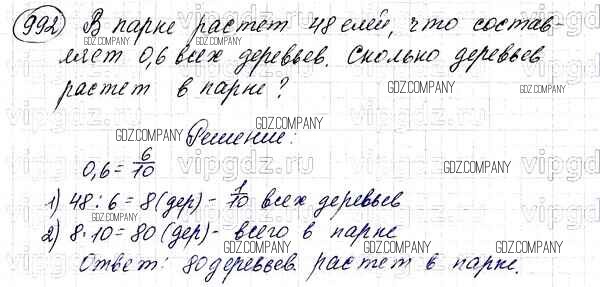 992 В парке растет 48 елей, что состав-
ляет 0,6 всех деревьев. Сколько деревьев
растет в парке?
Решение:
0,6 = 6/10
1) 48 : 6 = 8 (дер) - 1/10 всех деревьев
2) 8·10 = 80 (дер) - всего в парке
Ответ: 80 деревьев растет в парке.
GDZ.COMPANY
vipgdz.ru